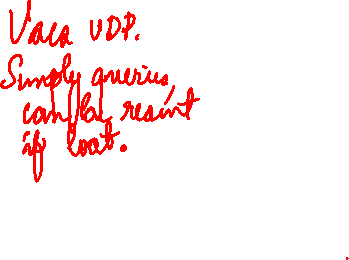 Uses UDP.
Simply queries,
can be resent
if lost.